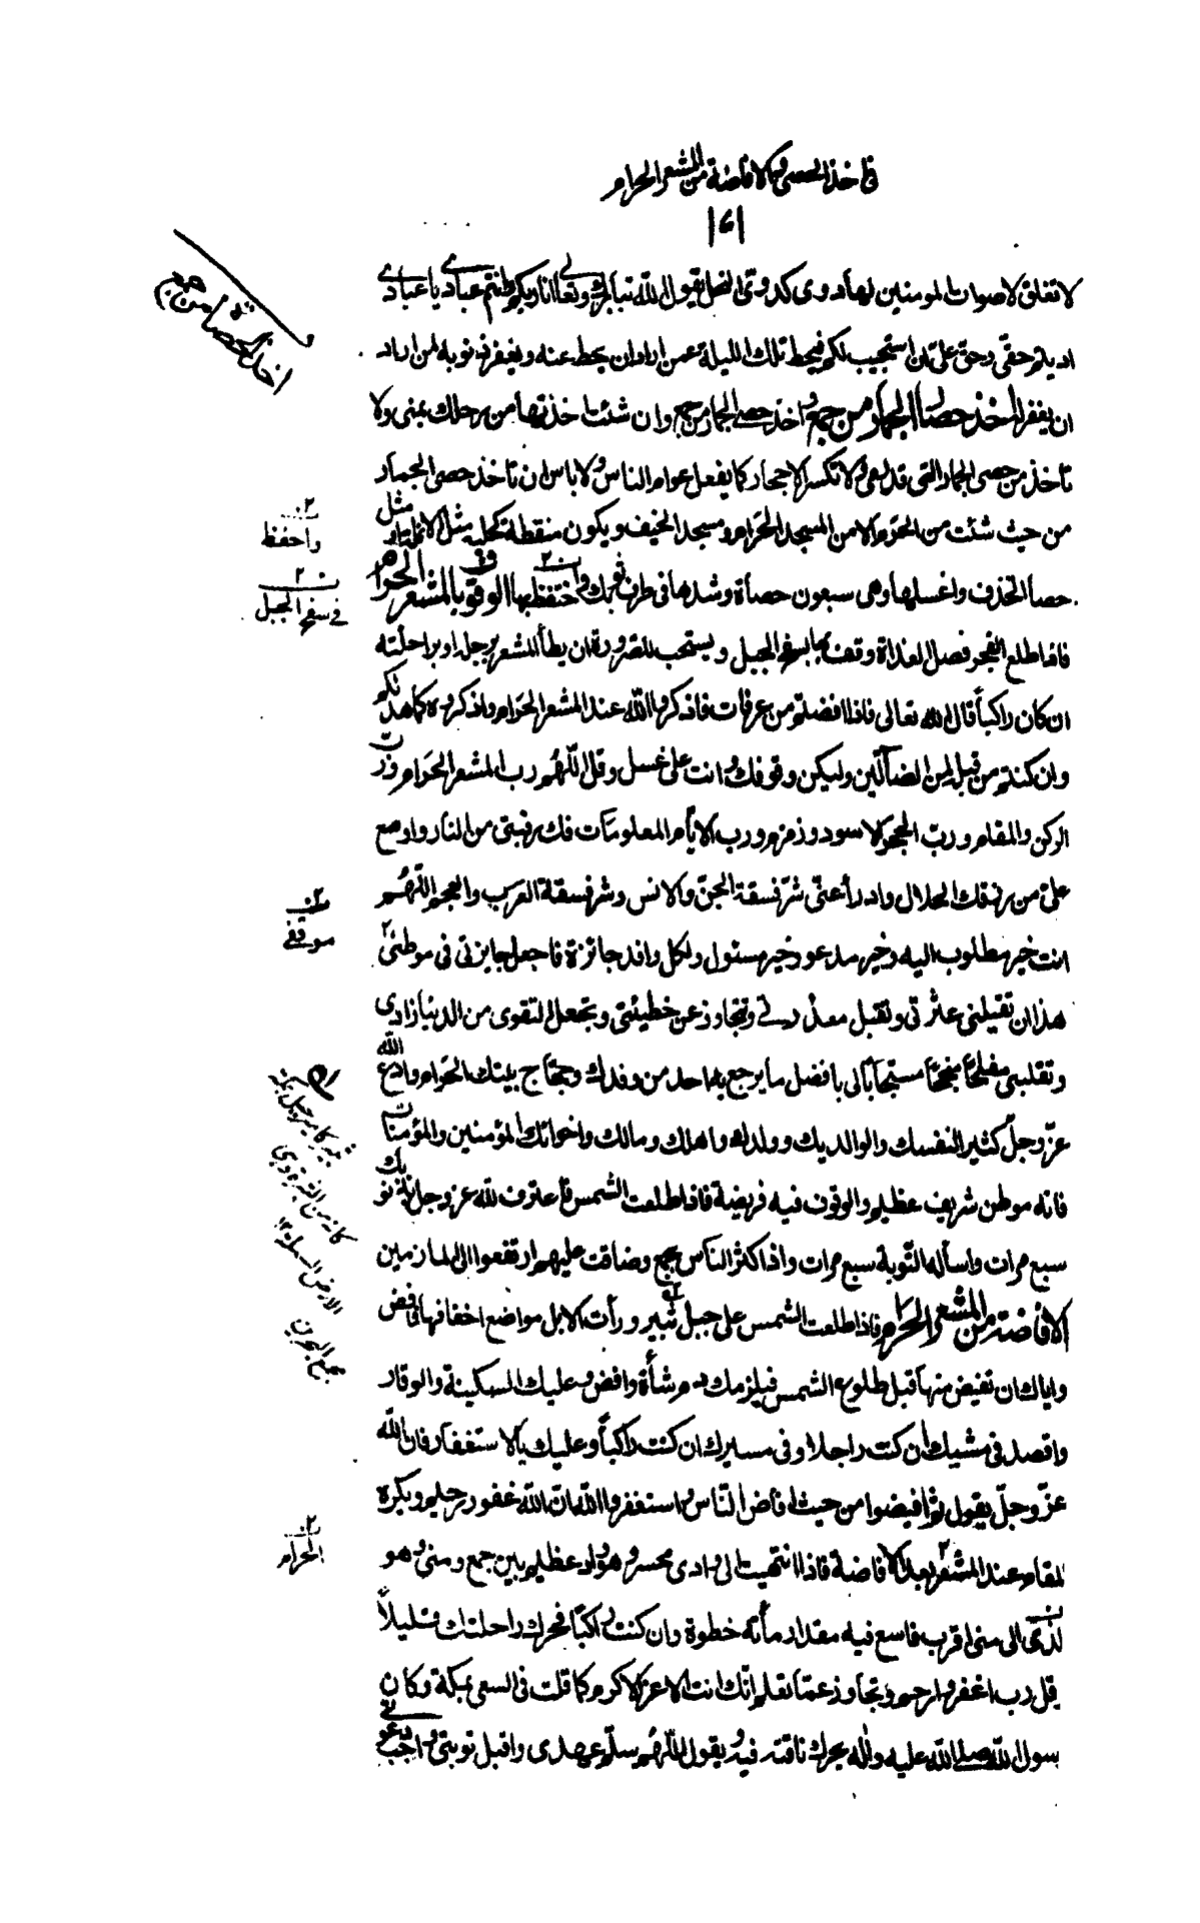 في اخذ الحصى والافاضة من المشعر الحرام
١٤١
لا تغلق لاصوات المومنين لها دوى كدوىّ النحل يقول الله تبارك وتعالى انا ربكم وانتم عبادى يا عبادى
اديتم حقى وحق علىّ ان استجيب لكم فيحط تلك الليلة عمن اراد ان يحط عنه ويغفر ذنوبه لمن اراد
ان يغفر له اخذ حصا الجمار من جمع واخذ حصى الجمار من جمع وان شئت اخذتها من رحلك بمنى ولا
تاخذ من حصى الجمار التى قد رمى ولا تكسر الاحجار كما يفعل عوام الناس ولا باس ان تاخذ حصى الجمار
من حيث شئت من الحرم الا من المسجد الحرام ومسجد الخيف ويكون منقطة كحلية مثل الانملة او مثل
حصا الخذف واغسلها وهى سبعون حصاة وشدها فى طرف ثوبك واحتفظ بها الوقوف بالمشعر الحرام
فاذا طلع الفجر فصل الغداة وقف بها بسفح الجبل ويستحب للصرورة ان يطأ المشعر برجله او براحلته
ان كان راكباً قال الله تعالى فاذا افضتم من عرفات فاذكروا الله عند المشعر الحرام واذكروه كما هداكم
وان كنتم من قبله لمن الضآلّين وليكن وقوفك وانت على غسل وقل اللّهم رب المشعر الحرام وربّ
الركن والمقام وربّ الحجر الاسود وزمزم ورب الايّام المعلومات فك رقبتى من النار واوسع
علىّ من رزقك الحلال وادرأ عنّى شرّ فسقة الجنّ والانس وشر فسقة العرب والعجم اللّهم
انت خير مطلوب اليه وخير مدعو وخير مسئول ولكل وافد جائزة فاجعل جايزتى فى موطنى
هذا ان تقيلنى عثرتى وتقبل معذرتى وتجاوز عن خطيئتى وتجعل التقوى من الدنيا زادى
وتقلبنى مفلحاً منجحاً مستجاباً لى بافضل ما يرجع به احد من وفدك وحجّاج بيتك الحرام وادع الله
عزّ وجلّ كثيرا لنفسك ولوالديك وولدك واهلك ومالك واخوانك المؤمنين والمؤمنات
فانه موطن شريف عظيم والوقوف فيه فريضة فاذا طلعت الشمس فاعترف لله عز وجل بذنوبك
سبع مرات واسأله التّوبة سبع مرات واذا كثر الناس بجمع وضاقت عليهم ارتفعوا الى المازمين
الافاضة من المشعر الحرام فاذا طلعت الشمس على جبل ثبير ورأت الابل مواضع اخفافها فافض
واياك ان تفيض منها قبل طلوع الشمس فيلزمك دم شأة وافض وعليك السكينة والوقار
واقصد فى مشيك ان كنت راجلا وفى مسيرك ان كنت راكباً وعليك بالاستغفار فان الله
عزّ وجلّ يقول ثم افيضوا من حيث افاض النّاس واستغفروا الله انّ الله غفور رحيم ويكره
لمقام عند المشعر بعد الافاضة فاذا انتهيت الى وادى محسر وهو واد عظيم بين جمع ومنى وهو
لى منى اقرب فاسع فيه مقدار مأته خطوة وان كنت راكبا فحرك راحلتك قليلاً
قل رب اغفر وارحم وتجاوز عمّا تعلم انّك انت الاعز الاكرم كما قلت فى السعى بمكة وكان
سول الله صلى الله عليه واله يحرك ناقته فيه ويقول اللّهم سلّم عهدى واقبل توبتى واجب دعوتى
اخذ الحصاة من جمع
واحفظ
فى سفح الجبل
موقفى
الحرام